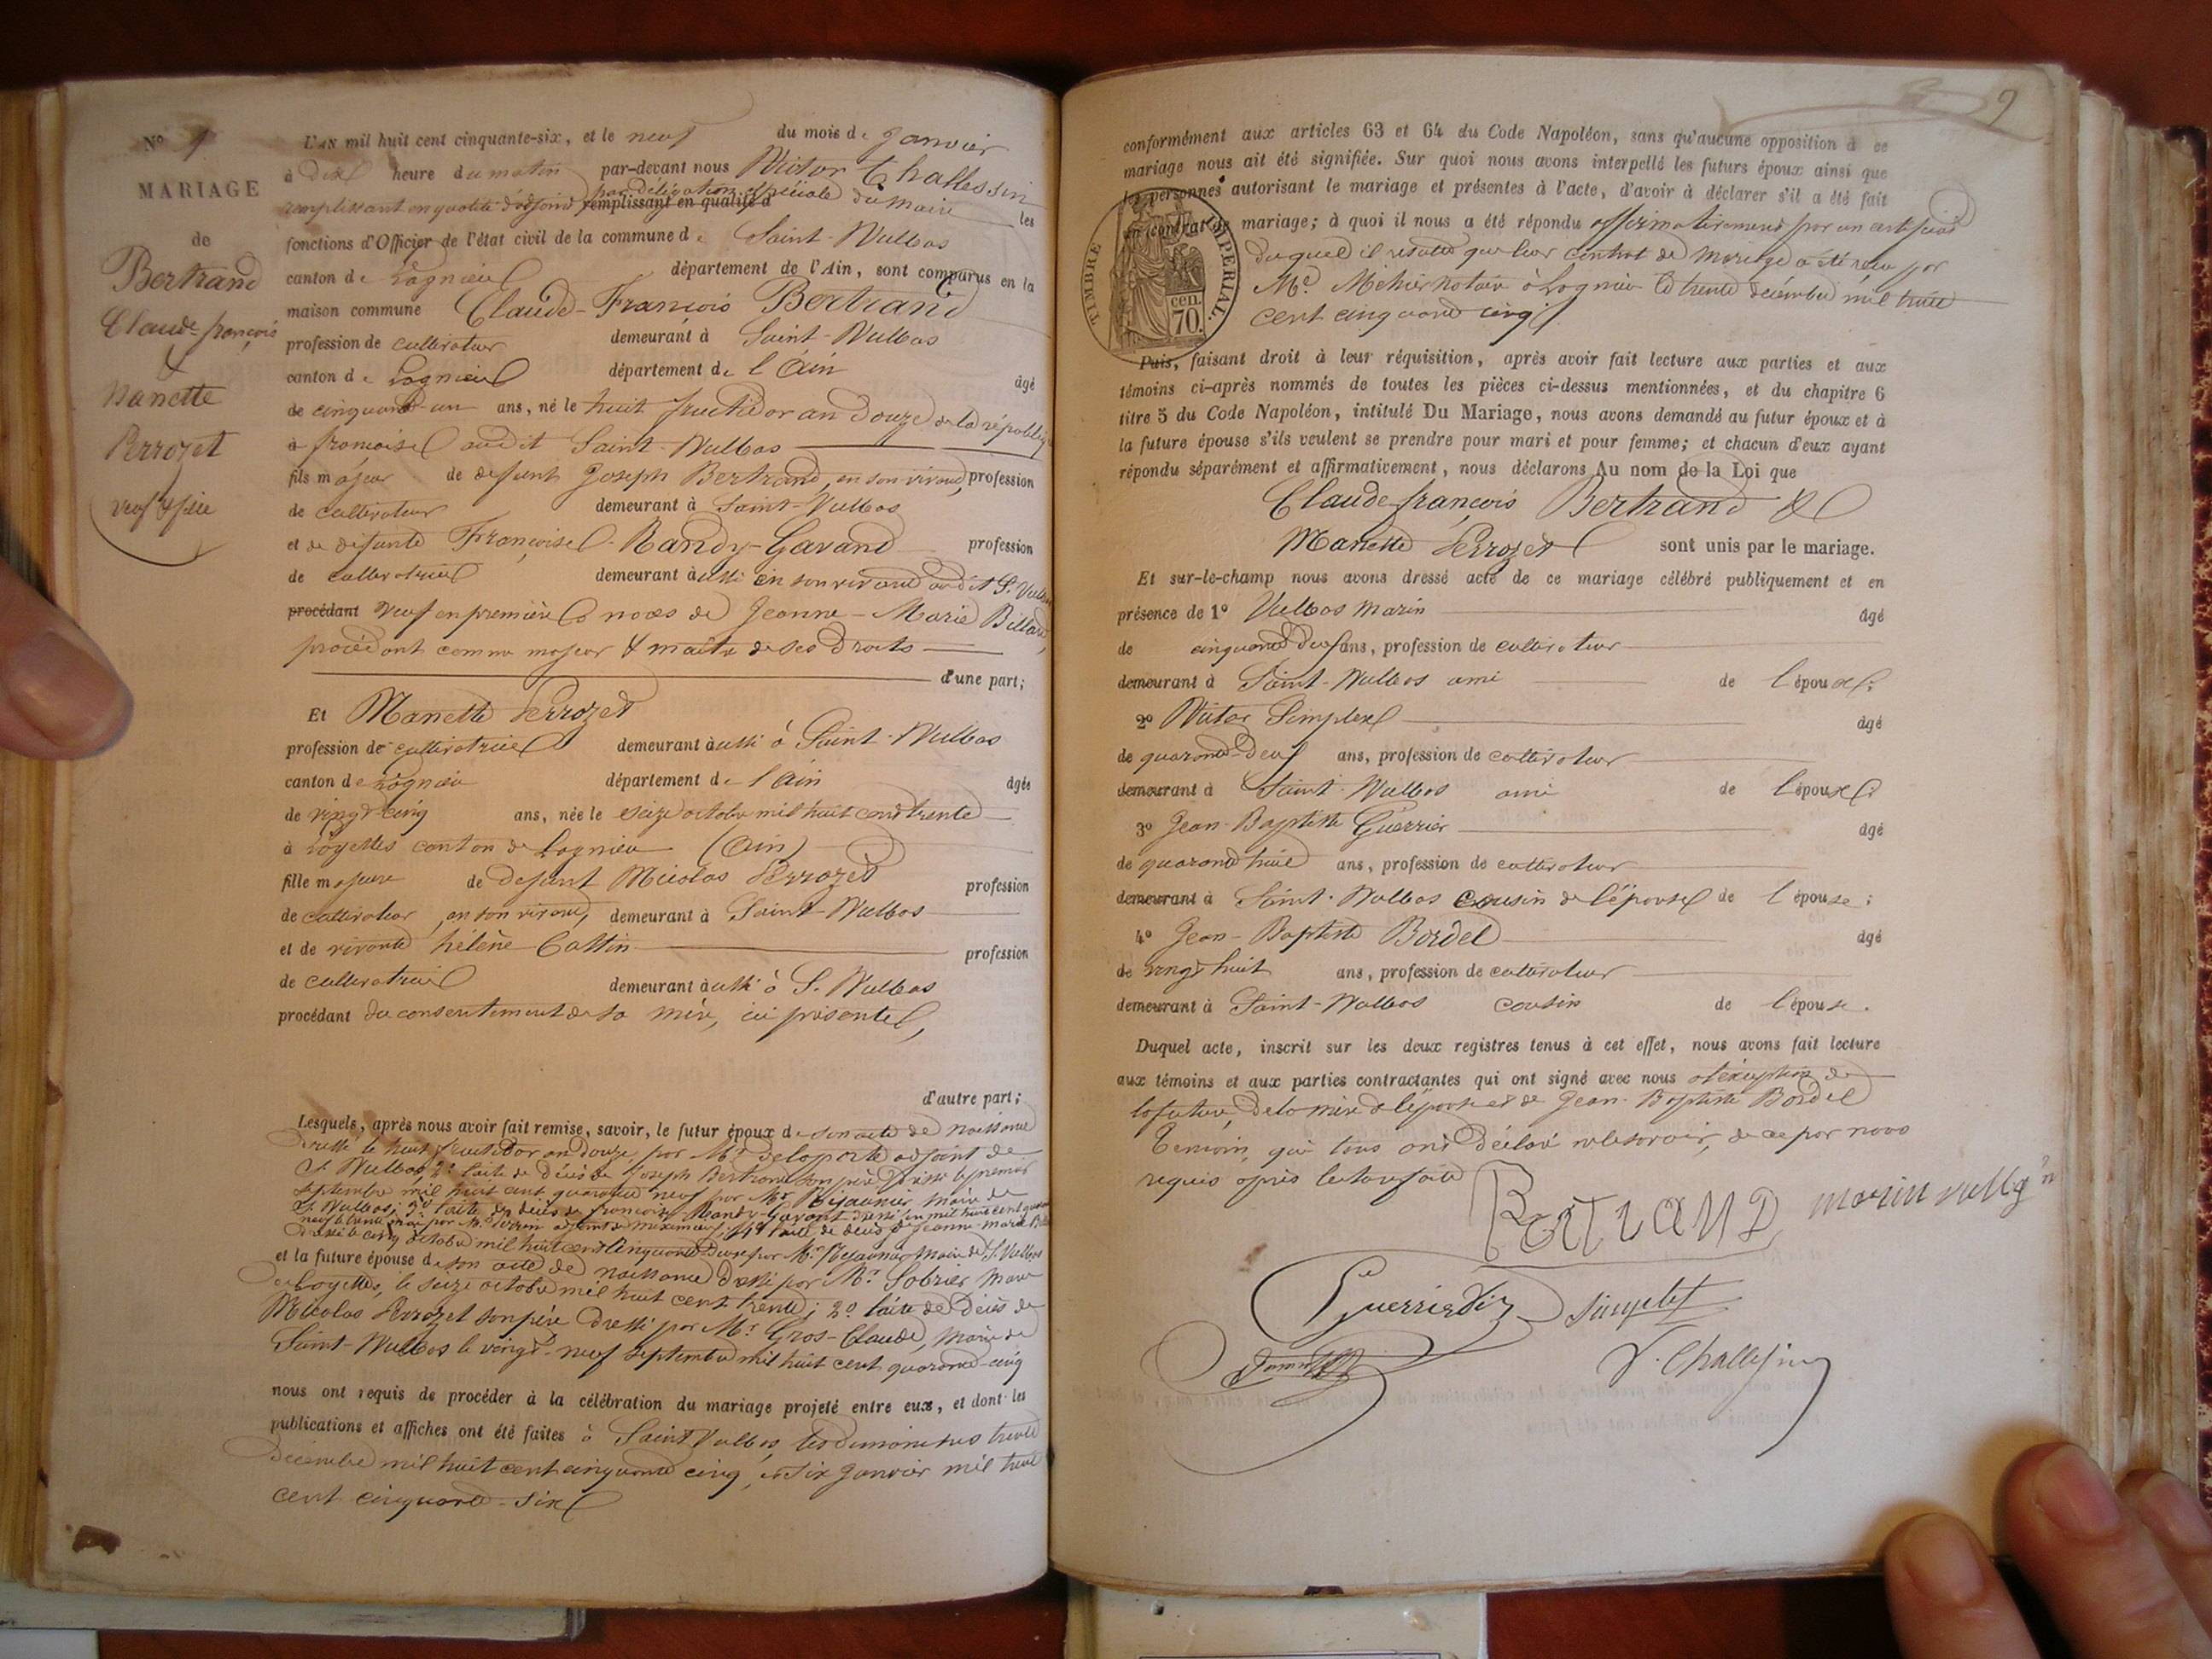 Nº 1
MARIAGE
de
Bertrand
Claude-françois
&
Nanette
Perrozet
veuf & fille
L'AN mil huit cent cinquante-six, et le neuf du mois de Janvier
à dix heure du matin par-devant nous Victor Challessin
remplissant en qualité d'adjoint par délégation spéciale du maire remplissant en qualité d les
fonctions d'Officier de l'état civil de la commune de Saint-Vulbas
canton de Lagnieu département de l'Ain, sont comparus en la
maison commune Claude-François Bertrand
profession de cultivateur demeurant à Saint-Vulbas
canton de Lagnieu département de l'Ain âgé
de cinquante un ans, né le huit fructidor an douze de la république
à françoise audit Saint-Vulbas
fils majeur de defunt Joseph Bertrand, en son vivant, profession
de cultivateur demeurant à Saint-Vulbas
et de défunte Françoise Randy-Gavand profession
de cultivatrice demeurant aussi en son vivant audit St. Vulbas
procédant veuf en premières noces de Jeanne-Marie Billard,
procédant comme majeur & maître de ses Droits
d'une part;
Et Nanette Perrozet
profession de cultivatrice demeurant aussi à Saint-Vulbas
canton de Lagnieu département de l'Ain âgée
de vingt-cinq ans, née le seize octobre mil huit cent trente
à Loyettes canton de Lagnieu (Ain)
fille majeure de defunt Nicolas Perrozet profession
de cultivateur, en son vivant, demeurant à Saint-Vulbas
et de vivante hélène Cattin profession
de cultivatrice demeurant aussi à St. Vulbas
procédant du consentement de sa mère, ici présente,
d'autre part;
Lesquels, après nous avoir fait remise, savoir, le futur époux de son acte de naissance
dressé le huit fructidor an douze, par Mr. Delaporte adjoint de
St. Vulbas, 2º l'acte de décès de Joseph Bertrand son père dressé le premier
septembre mil huit cent quarante neuf par Mr. maire de
St. Vulbas; 3º l'acte de décès de françoise Randy-Gavant dressé en mil huit cent quarante
neuf le trente mai par Mr. adjoint 4º l'acte de décès de Jeanne-Marie
dressé le cinq octobre mil huit cent cinquante-deux par Mr. maire de St. Vulbas
et la future épouse de son acte de naissance dressé par Mr. Sobrier maire
de Loyettes, le seize octobre mil huit cent trente; 2º l'acte de décès de
Nicolas Perrozet son père dressé par Mr. Gros-Claude, maire de
Saint-Vulbas le vingt-neuf septembre mil huit cent quarante-cinq
nous ont requis de procéder à la célébration du mariage projeté entre eux, et dont les
publications et affiches ont été faites à Saint Vulbas, les dimanches trente
décembre mil huit cent cinquante cinq, et six Janvier mil huit
cent cinquante-six
9
conformément aux articles 63 et 64 du Code Napoléon, sans qu'aucune opposition à ce
mariage nous ait été signifiée. Sur quoi nous avons interpellé les futurs époux ainsi que
les personnes autorisant le mariage et présentes à l'acte, d'avoir à déclarer s'il a été fait
un contrat de mariage; à quoi il nous a été répondu affirmativement par un certificat
duquel il résulte que leur contrat de mariage a été reçu par
Me. notaire à Lagnieu le trente décembre mil huit
cent cinquante cinq
TIMBRE IMPERIAL.
cen.
70.
Puis, faisant droit à leur réquisition, après avoir fait lecture aux parties et aux
témoins ci-après nommés de toutes les pièces ci-dessus mentionnées, et du chapitre 6
titre 5 du Code Napoléon, intitulé Du Mariage, nous avons demandé au futur époux et à
la future épouse s'ils veulent se prendre pour mari et pour femme; et chacun d'eux ayant
répondu séparément et affirmativement, nous déclarons Au nom de la Loi que
Claude-françois Bertrand &
Nanette Perrozet sont unis par le mariage.
Et sur-le-champ nous avons dressé acte de ce mariage célébré publiquement et en
présence de 1º Vulbas Marin âgé
de cinquante deux ans, profession de cultivateur
demeurant à Saint-Vulbas ami de l'époux;
2º Victor Simplex âgé
de quarante-deux ans, profession de cultivateur
demeurant à Saint-Vulbas ami de l'époux;
3º Jean-Baptiste Guerrier âgé
de quarante huit ans, profession de cultivateur
demeurant à Saint-Vulbas cousin de l'épouse de l'épouse;
4º Jean-Baptiste Bordel âgé
de vingt huit ans, profession de cultivateur
demeurant à Saint-Vulbas cousin de l'épouse.
Duquel acte, inscrit sur les deux registres tenus à cet effet, nous avons fait lecture
aux témoins et aux parties contractantes qui ont signé avec nous à l'exception de
la future, de la mère de l'épouse et de Jean-Baptiste Bordel
témoin, qui tous ont déclaré ne le savoir, de ce par nous
requis après lecture faite
Bertrand
marin
Guerrier
V. Challessin